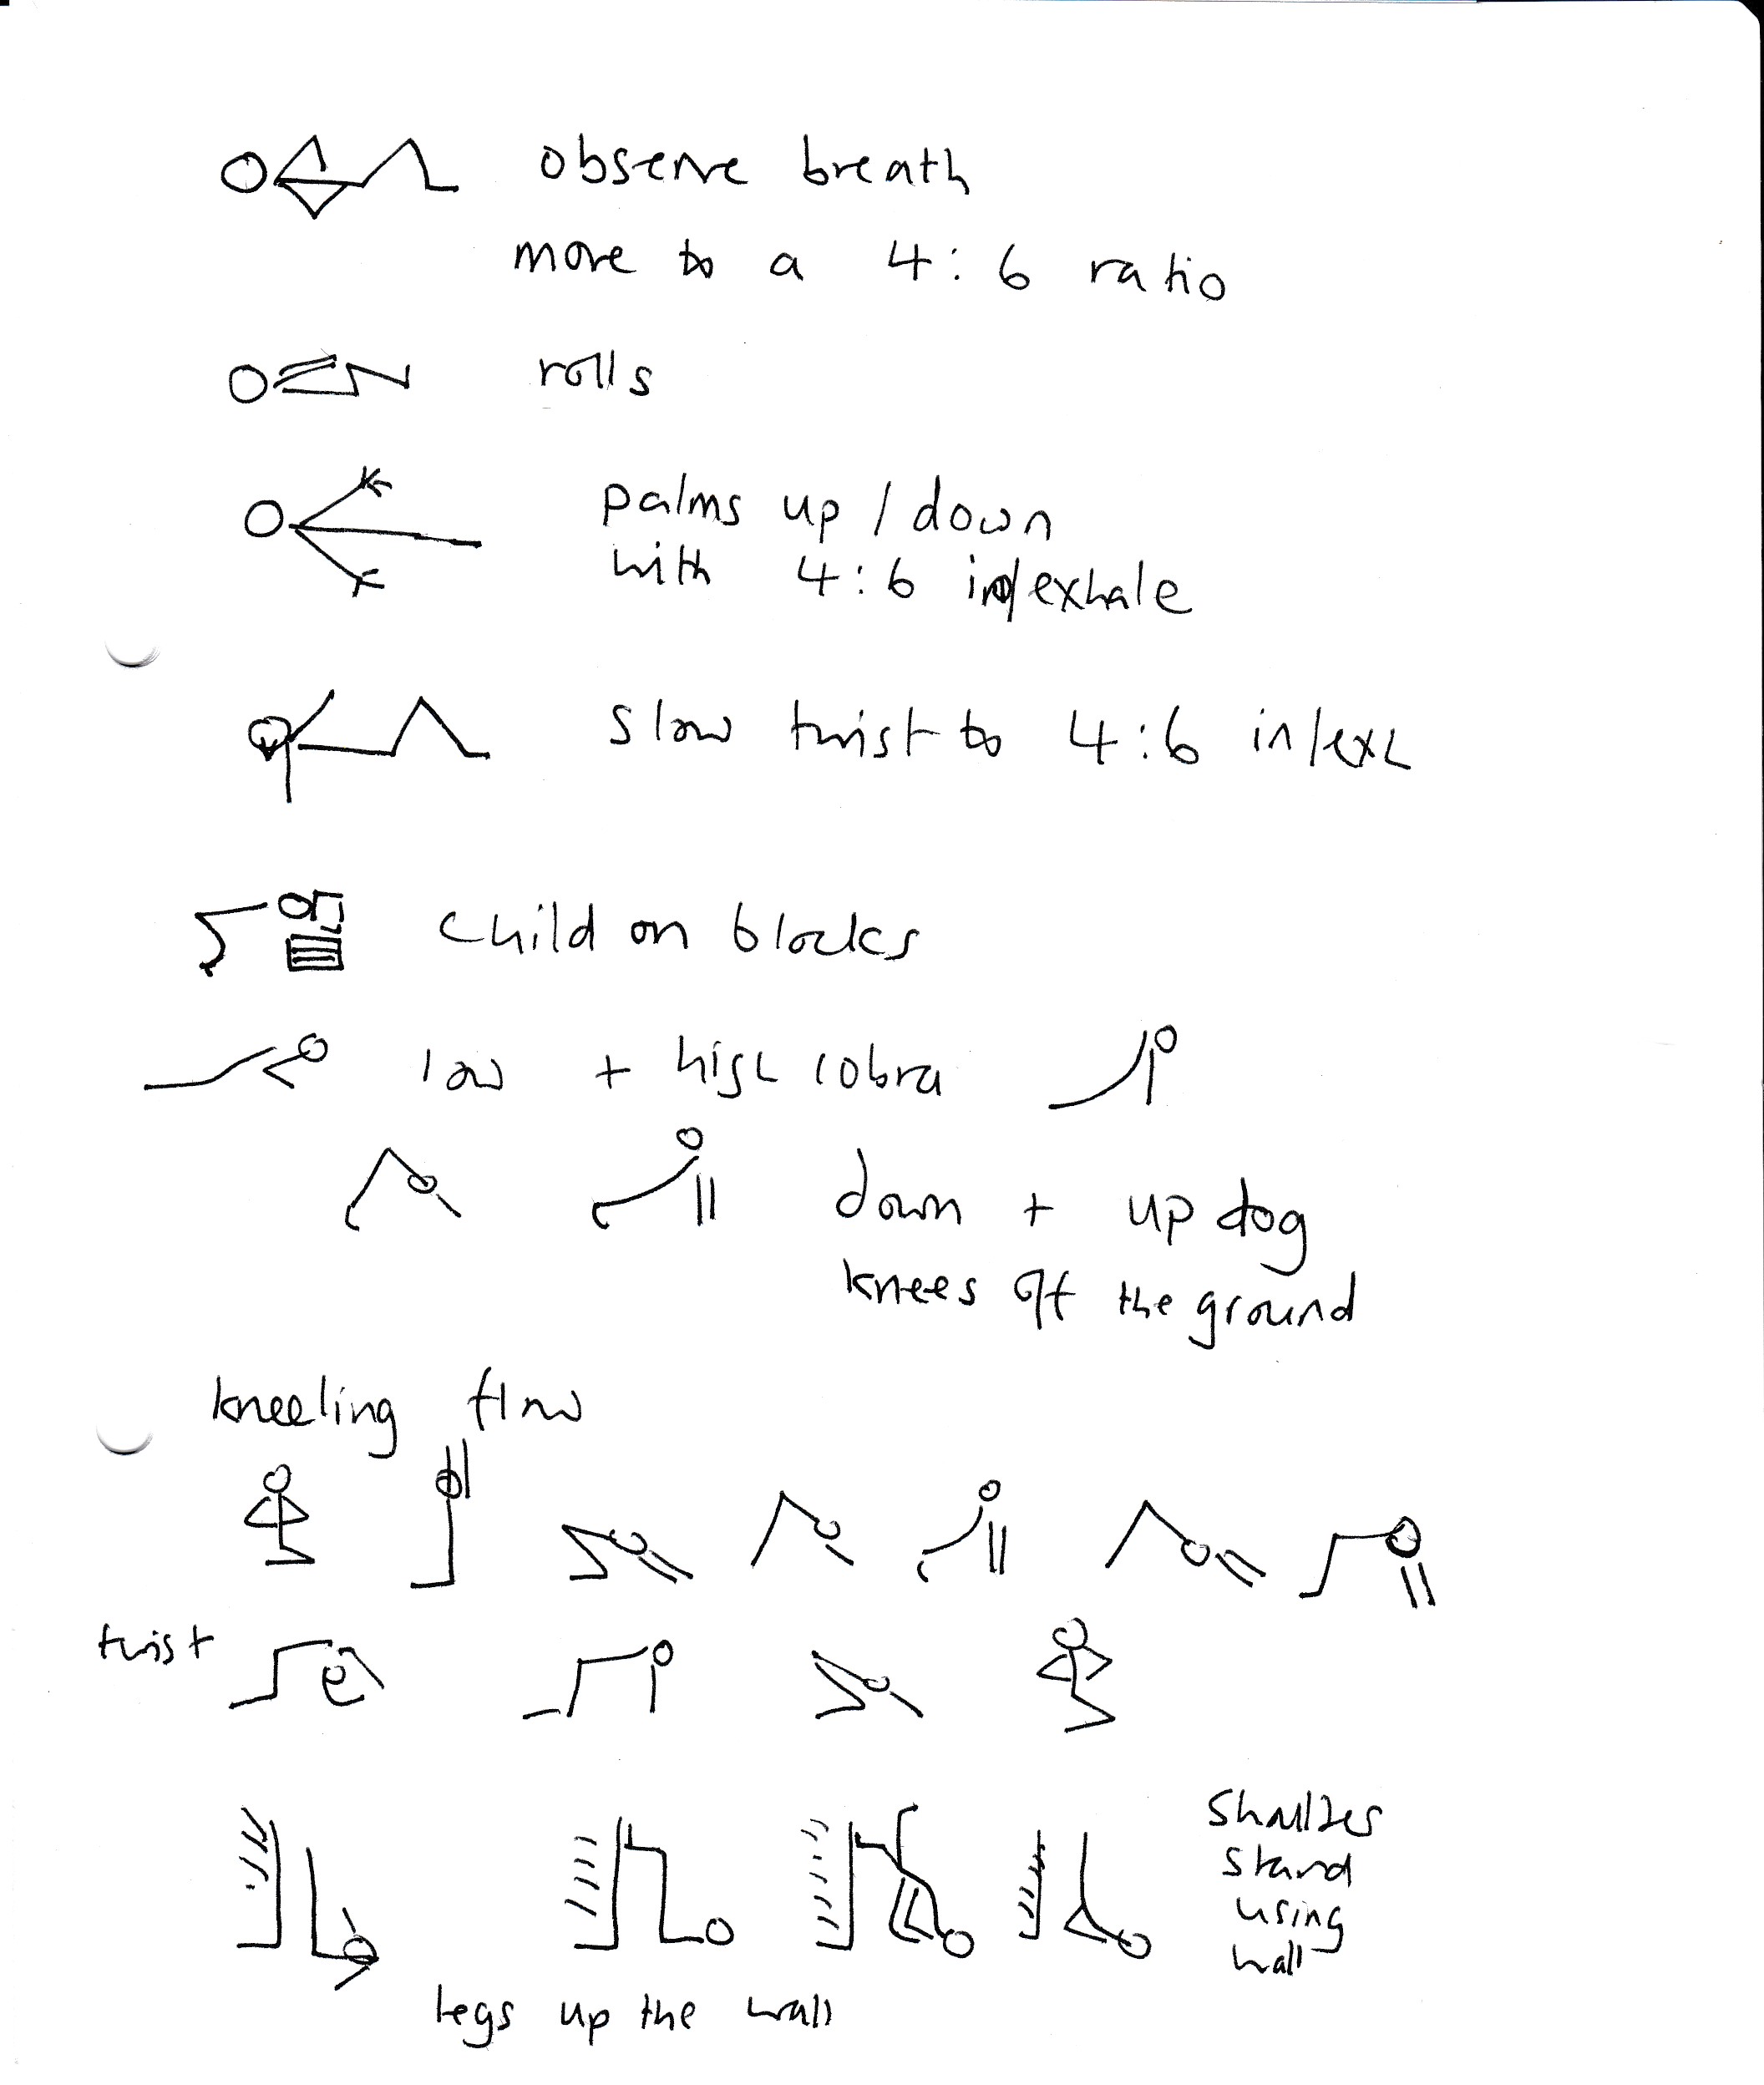 observe breath
move to a 4:6 ratio
rolls
palms up / down
with 4:6 in/exhale
slow twist to 4:6 in/exh
child on blocks
low + high cobra
down + up dog
knees off the ground
kneeling flow
twist
shoulder
stand
using
wall
legs up the wall